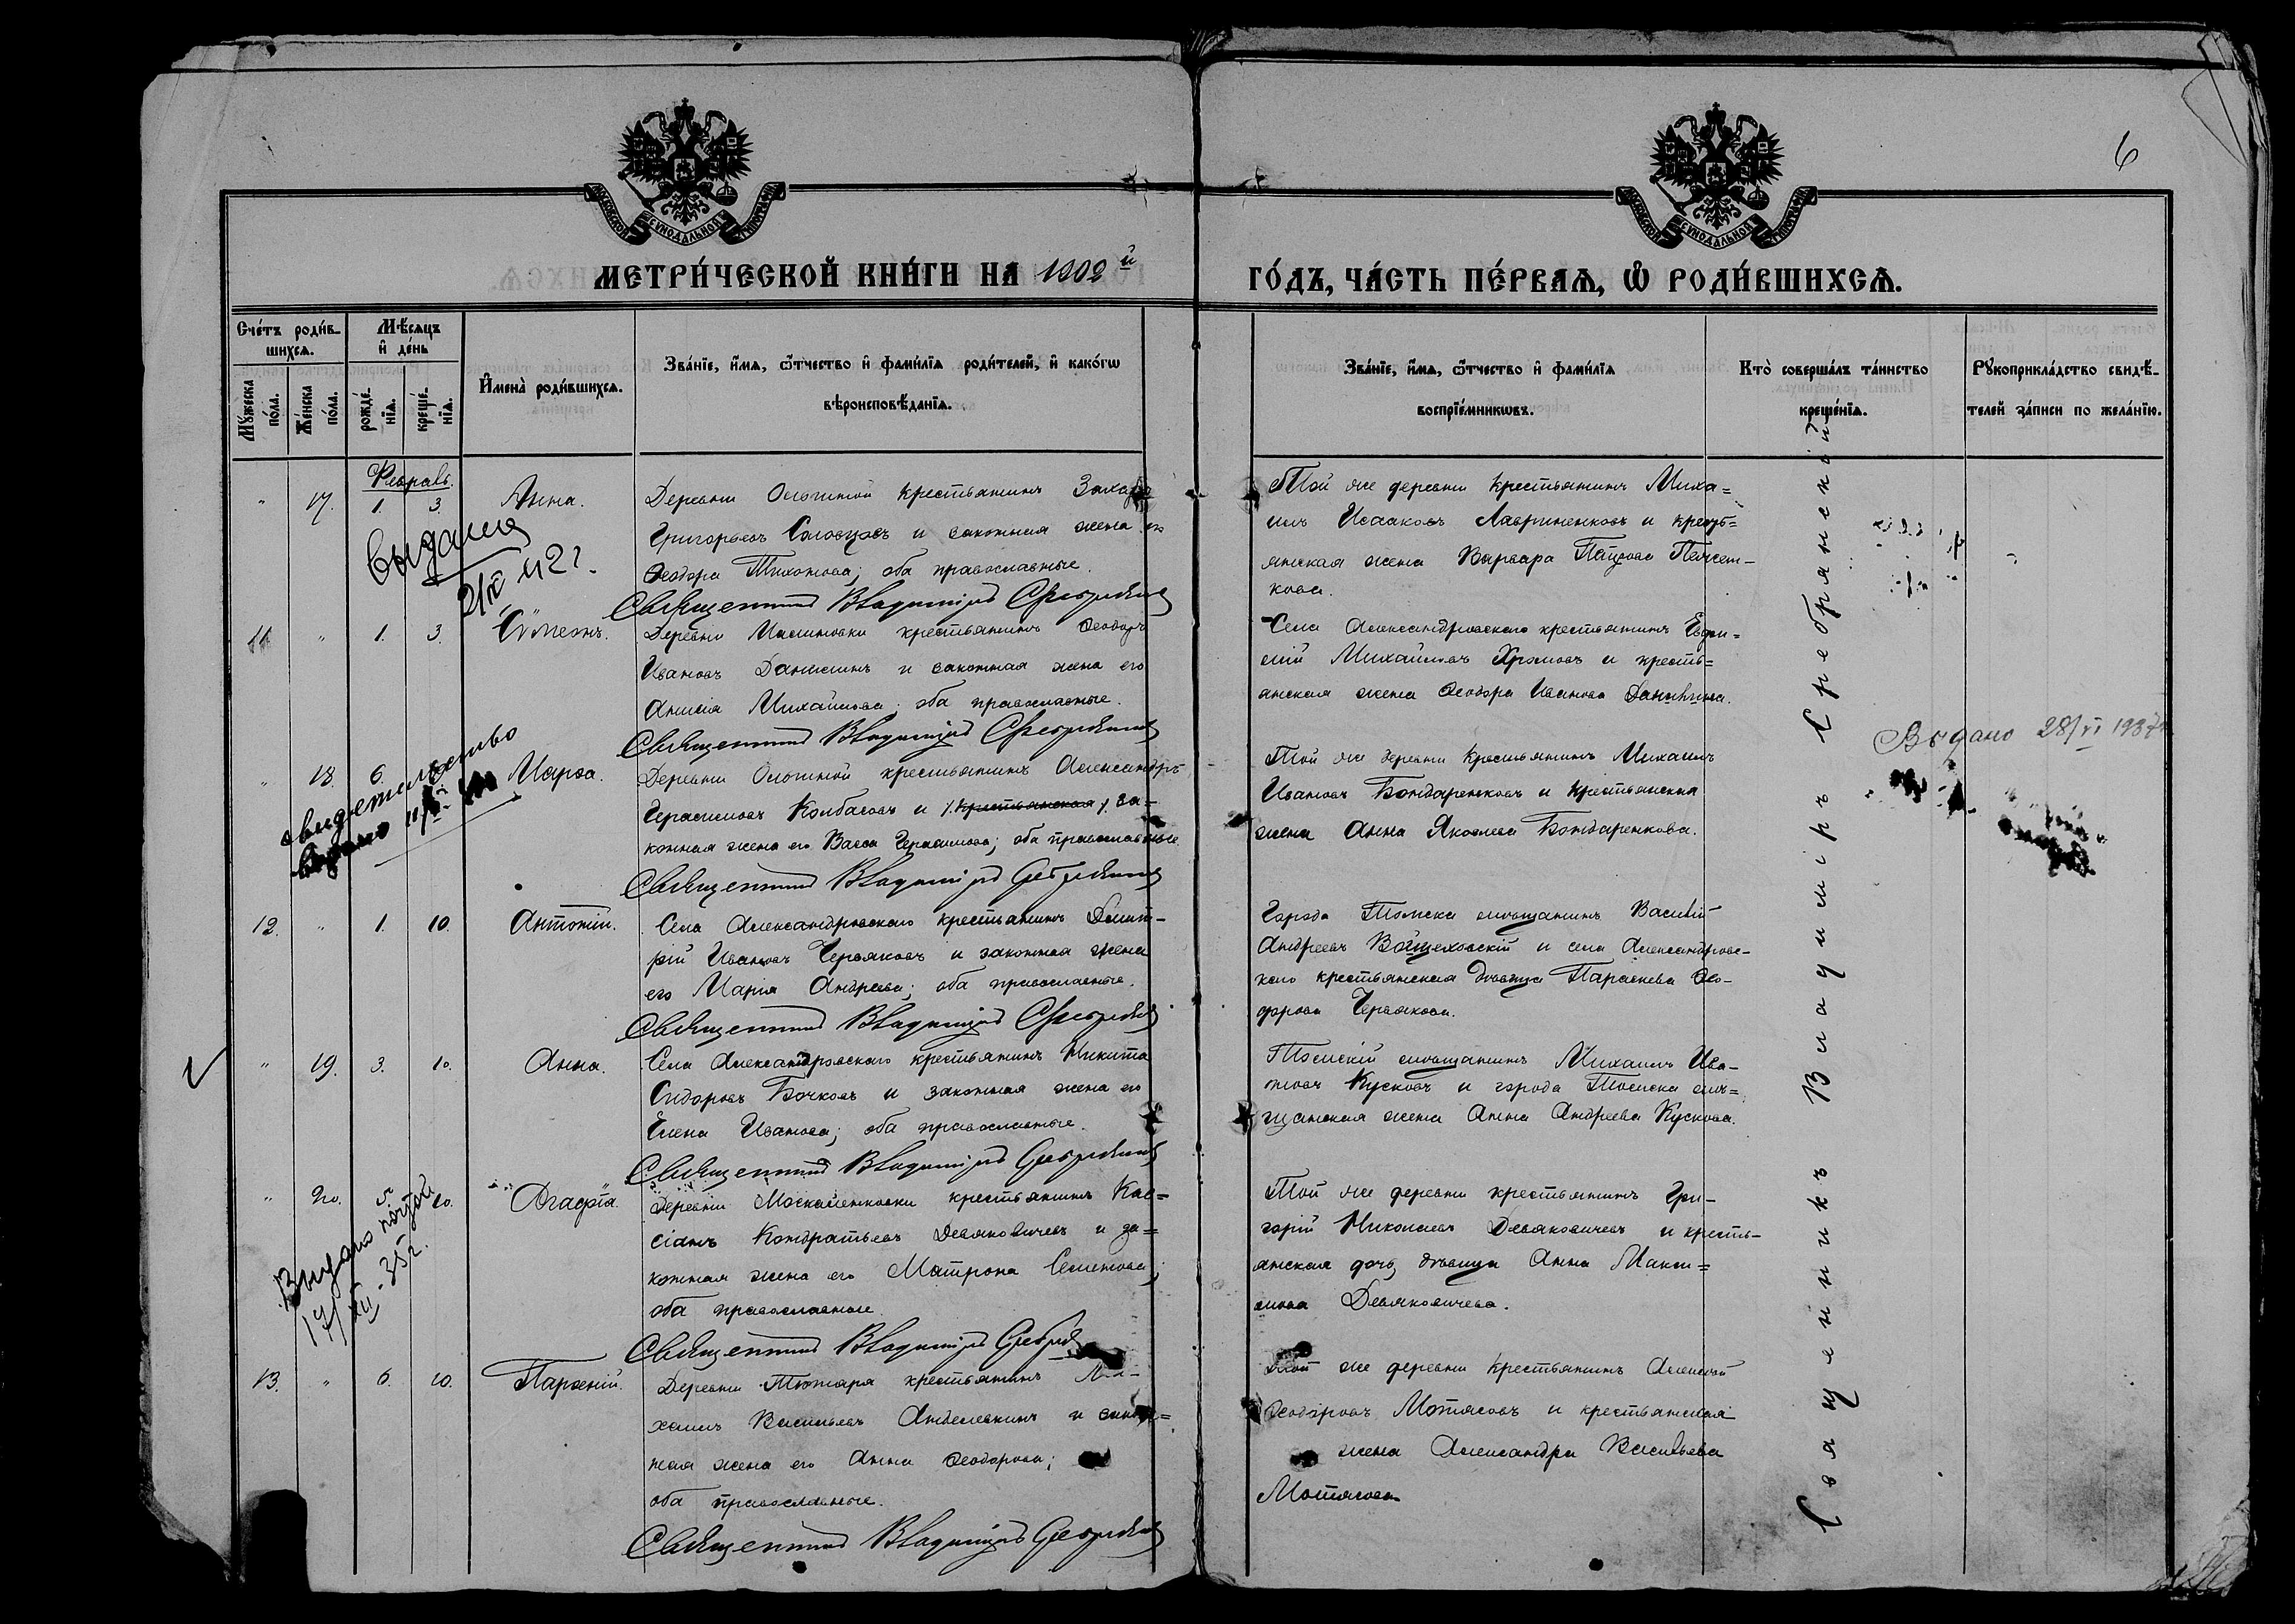 6
МОСКОВСКОЙ СѴНОДАЛЬНОЙ ТИПОГРАФІИ
МОСКОВСКОЙ СѴНОДАЛЬНОЙ ТИПОГРАФІИ
МЕТРИ́ЧЕСКОЙ КНИ́ГИ НА 1902й
ГО́ДЪ, ЧА́СТЬ ПЕ́РВАѦ, Ѡ҆ РОДИ́ВШИХСѦ.
Сче́тъ роди́в-
шихсѧ.
Мꙋ́жеска по́ла.
Же́нска по́ла.
Мѣ́сѧцъ
и҆ де́нь
рожде́-
нїѧ.
креще́-
нїѧ.
И҆мена̀ роди́вшихсѧ.
Зва́нїе, и҆́мѧ, ѻ҆́тчество и҆ фами́лїѧ роди́телей, и҆ како́гѡ
вѣроисповѣ́данїѧ.
Зва́нїе, и҆́мѧ, ѻ҆́тчество и҆ фами́лїѧ
воспрїе́мникѡвъ.
Кто̀ соверша́лъ та́инство
креще́нїѧ.
Рꙋкоприкла́дство свидѣ́-
телей за́писи по жела́нїю.
Февраль.
" 17. 1. 3. Анна.
Деревни крестьянинъ Захаръ
Григорьевъ и законная жена его
Ѳеодора Тихонова; оба православные.
Священникъ Владиміръ Серебрянскій
Той же деревни крестьянинъ Миха=
илъ Исааковъ Лавриненковъ и кресть=
янская жена Варвара
кова.
выдана
42г.
11. " 1. 3. Сѵмеонъ.
Деревни Малиновки крестьянинъ Ѳеодоръ
Ивановъ Данилинъ и законная жена его
Анисія Михайлова; оба православные.
Священникъ Владиміръ Серебрянскій
Села Александровскаго крестьянинъ Евфи=
мій Михайловъ Храмовъ и кресть=
янская жена Ѳеодора Иванова
" 18. 6. Марѳа.
Деревни крестьянинъ Александръ
Герасимовъ Колбасовъ и /. крестьянская /. за-
конная жена его Васса Герасимова; оба православные
Священникъ Владиміръ Серебрянскій
Той же деревни крестьянинъ Михаилъ
Ивановъ Бондаренковъ и крестьянская
жена Анна Яковлева Бондаренкова.
свидетельство
Выдано 28/VI 1937г.
12. " 1. 10. Антоній.
Села Александровскаго крестьянинъ Димит-
рій Ивановъ Червяковъ и законная жена
его Марія Андреева; оба православные.
Священникъ Владиміръ Серебрянскій
Города Томска мѣщанинъ Василій
Андреевъ Войцеховскій и села Александровс-
каго крестьянская дѣвица Параскева Ѳео-
дорова Червякова.
" 19. 3. 10. Анна.
Села Александровскаго крестьянинъ Никита
Сидоровъ Бочковъ и законная жена его
Елена Иванова; оба православные.
Священникъ Владиміръ Серебрянскій
Томскій мѣщанинъ Михаилъ Ива-
новъ Кусковъ и города Томска мѣ=
щанская жена Анна Андреева Кускова.
" 20. 5. 10. Агафія.
Деревни крестьянинъ Кас=
сіанъ Кондратьевъ Девяковичевъ и за=
конная жена его Матрона Семенова;
оба православные.
Священникъ Владиміръ
Той же деревни крестьянинъ Гри-
горій Николаевъ Девяковичевъ и кресть-
янская дочь дѣвица Анна Макси=
мова Девяковичева.
Выдано почтой
17/XII-35г.
13. " 6. 10. Парѳеній.
Деревни крестьянинъ
хаилъ Васильевъ и закон=
ная жена его Анна Ѳеодорова;
оба православные.
Священникъ Владиміръ Серебрянскій
Той же деревни крестьянинъ Алексѣй
Ѳеодоровъ Мотясовъ и крестьянская
жена Александра Васильева
Мотясова
Священникъ Владиміръ Сребрянскій